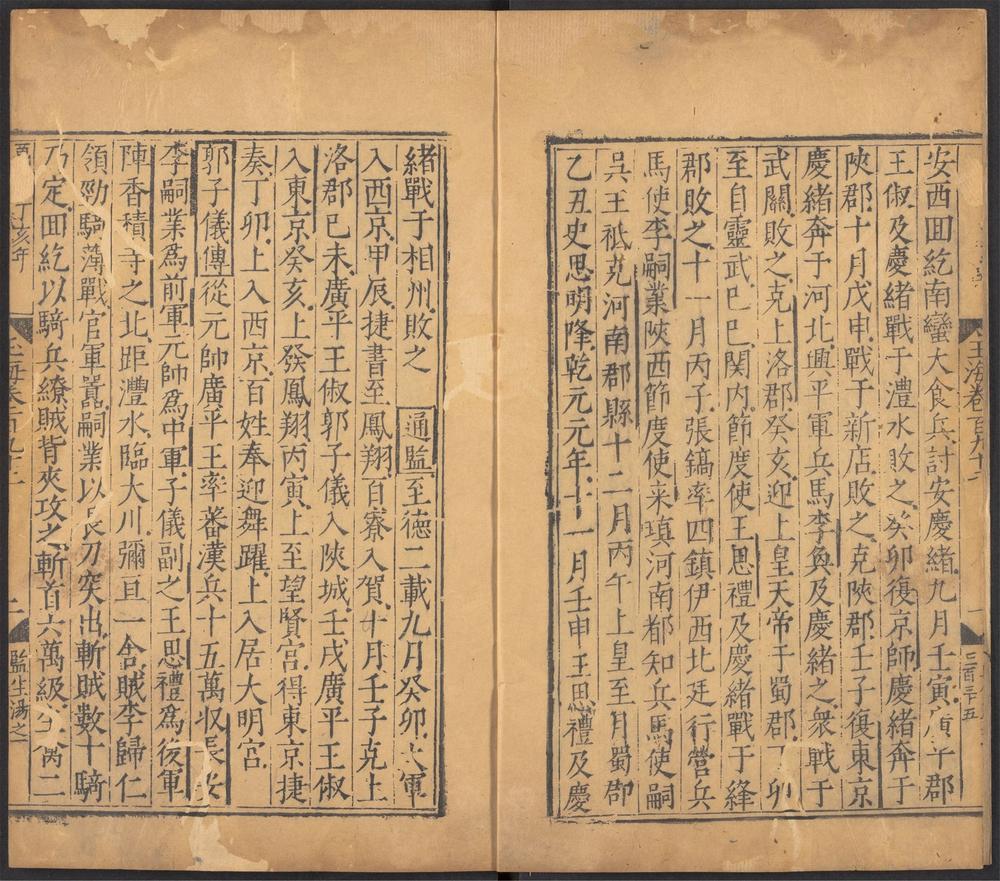 玉海卷一百九十
安西回紇南蠻大食兵討安慶緒九月壬寅廣平郡
王俶及慶緒戰于澧水敗之癸卯復京師慶緒奔于
陝郡十月戊申戰于新店敗之克陝郡壬子復東京
慶緒奔于河北興平軍兵馬李奐及慶緒之衆戰于
武關敗之克上洛郡癸亥迎上皇天帝于蜀郡丁卯
至自靈武己巳関内節度使王思禮及慶緒戰于絳
郡敗之十一月丙子張鎬率四鎮伊西北廷行營兵
馬使李嗣業陝西節度使来瑱河南都知兵馬使嗣
吳王祗克河南郡縣十二月丙午上皇至自蜀郡
乙丑史思明降乾元元年十一月壬申王思禮及慶
緒戰于相州敗之 通監至德二載九月癸卯大軍
入西京甲辰捷書至鳳翔百寮入賀十月壬子克上
洛郡己未廣平王俶郭子儀入陝城壬戌廣平王俶
入東京癸亥上發鳳翔丙寅上至望賢宮得東京捷
奏丁卯上入西京百姓奉迎舞躍上入居大明宮
郭子儀傳從元帥廣平王率蕃漢兵十五萬收長安
李嗣業爲前軍元帥爲中軍子儀副之王思禮爲後軍
陣香積寺之北距灃水臨大川彌亘一舍賊李歸仁
領勁騎薄戰官軍囂嗣業以長刀突出斬賊數十騎
乃定回紇以騎兵繚賊背夾攻之斬首六萬級生禽二
丁亥年
二
監生湯之一